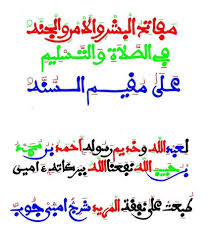 مفاتح البشر والامن والجنه
في الصلاة والتسليم
على مقيم السنه
لعبد الله وخديم رسوله أحمد بن محمد
بن حبيب الله نفعنا الله ببركاته ءامين
طبعت على نفقة المريد امبي جوب